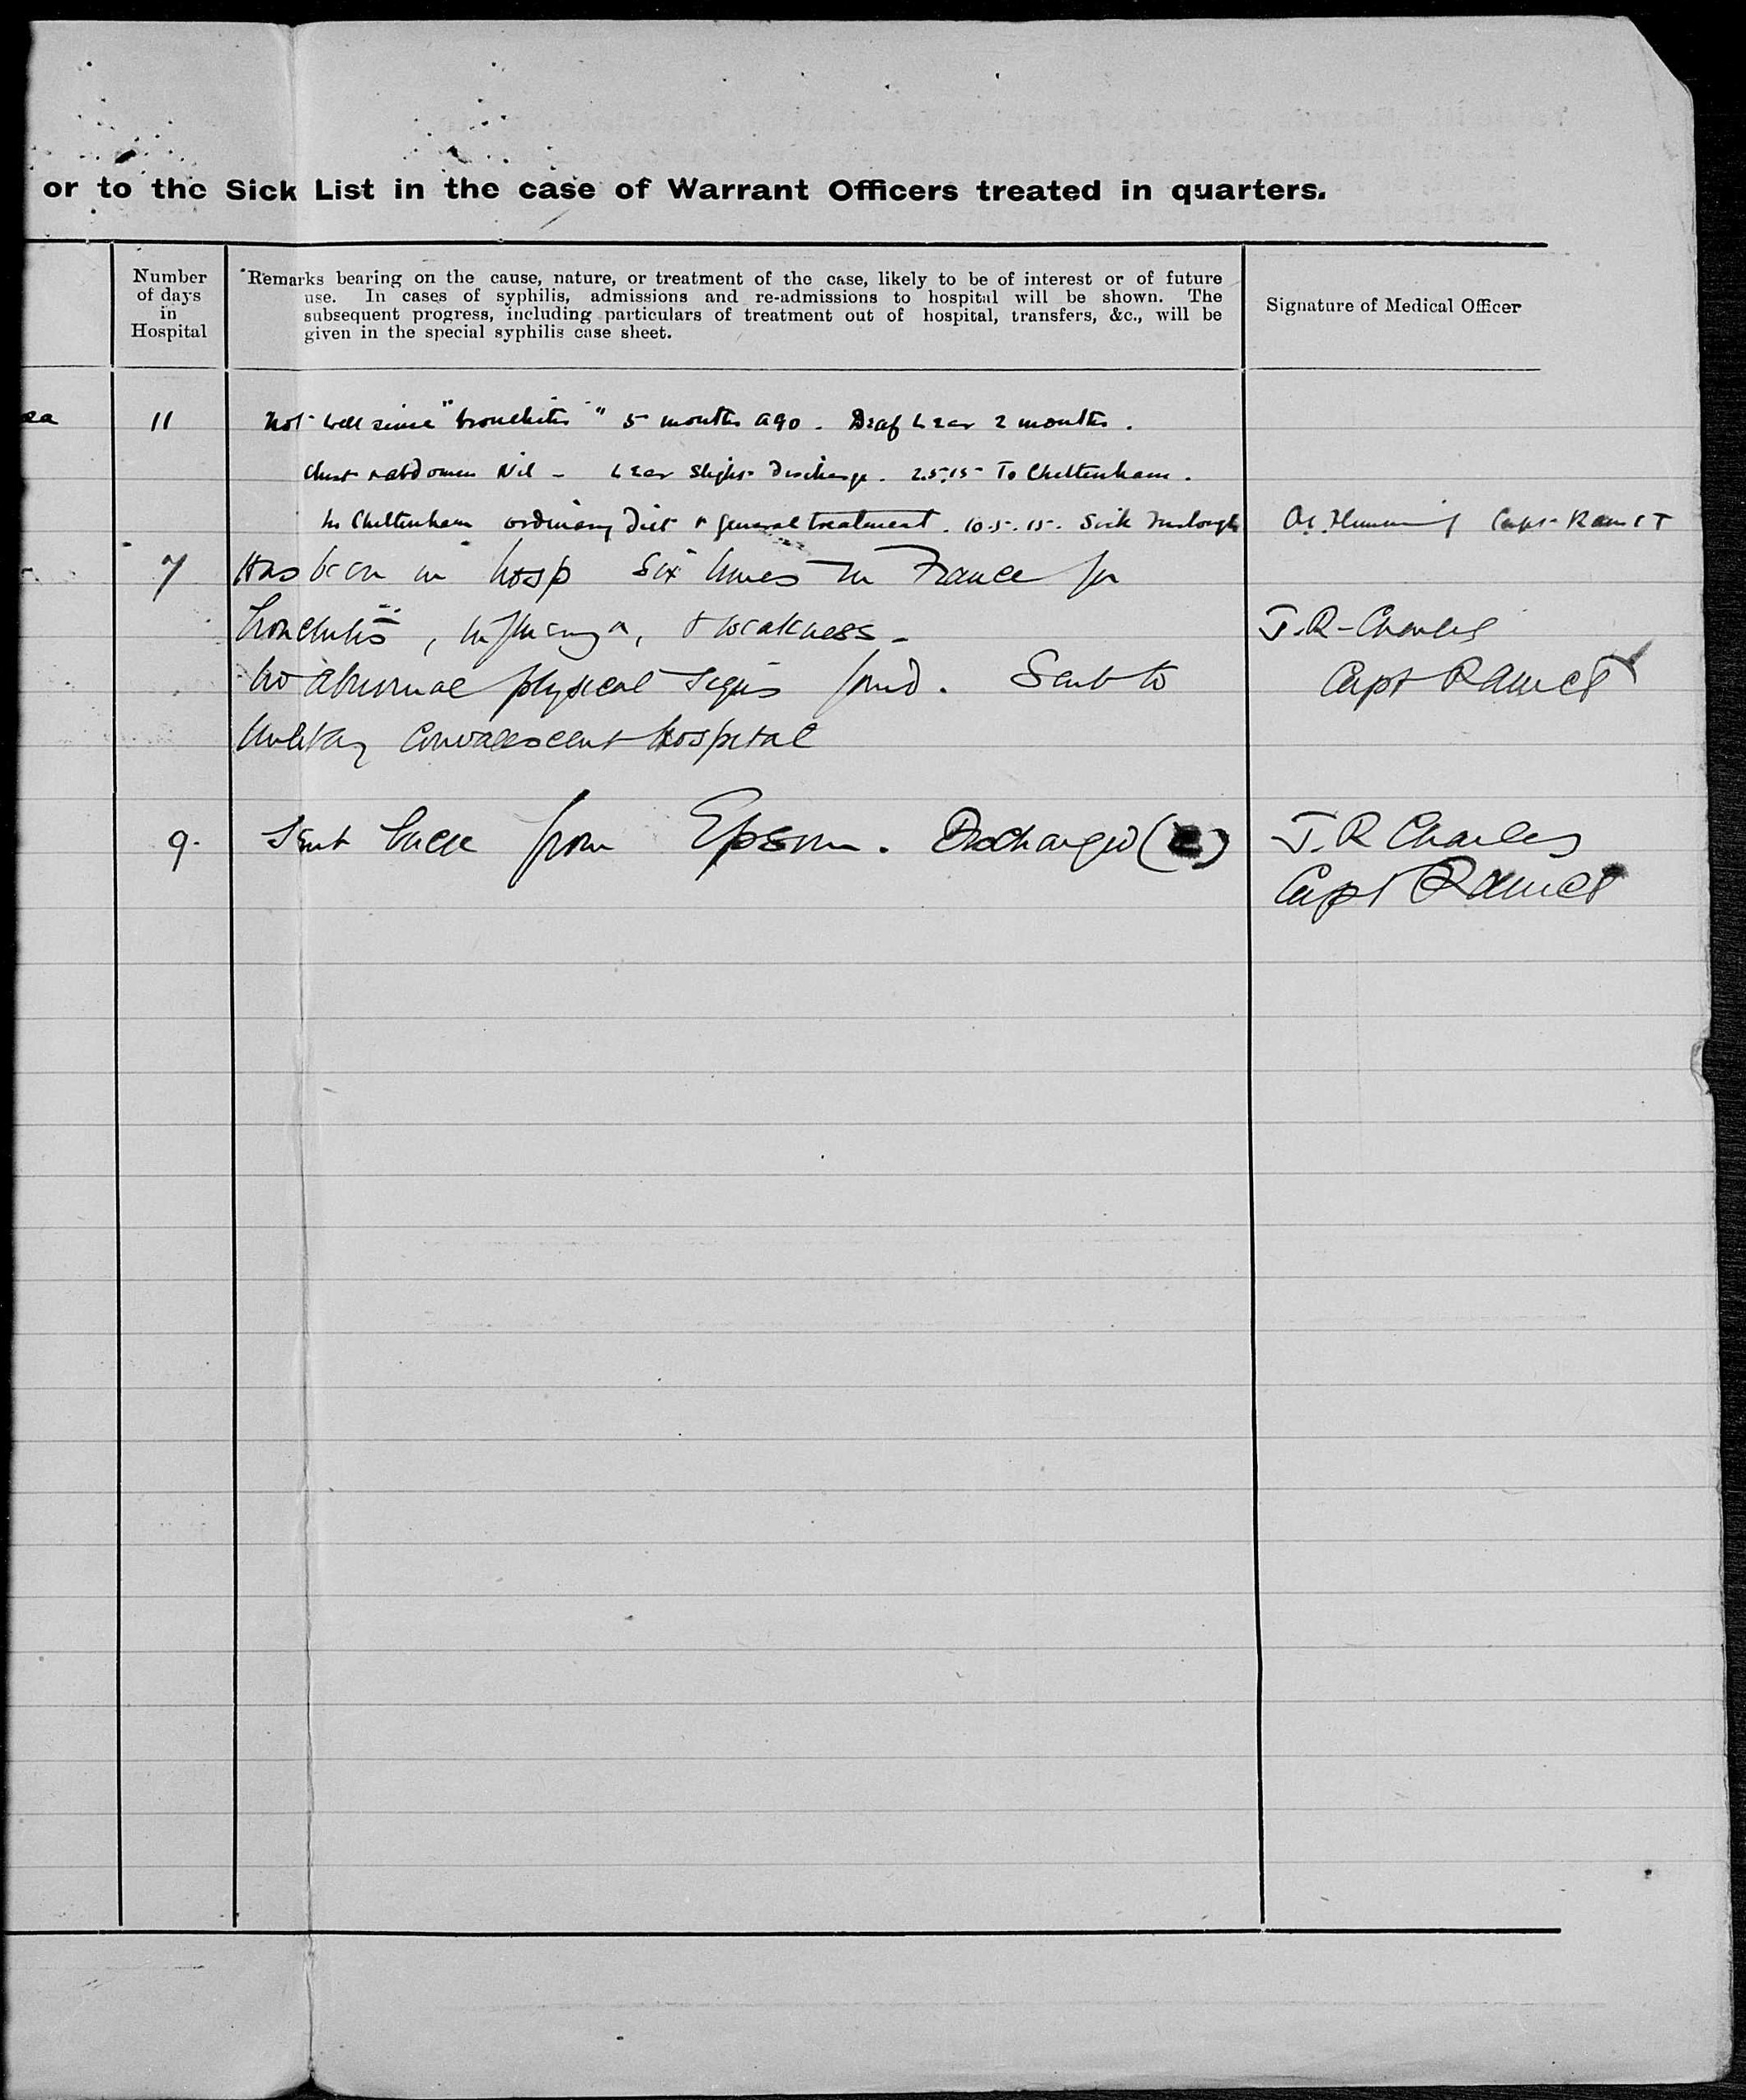 or to the Sick List in the case of Warrant Officers treated in quarters.
Number
of days
in
Hospital
Remarks bearing on the cause, nature, or treatment of the case, likely to be of interest or of future
use. In cases of syphilis, admissions and re-admissions to hospital will be shown. The
subsequent progress, including particulars of treatment out of hospital, transfers, &c., will be
given in the special syphilis case sheet.
Signature of Medical Officer
11 Not well since "bronchitis" 5 months ago. Deaf L ear 2 months.
Chest & abdomen Nil - L ear slight discharge. 2.5.15 To Cheltenham.
In Cheltenham ordinary diet & general treatment. 10.5.15. Sick Furlough Capt RAMCT
7 Has been in hosp six times in France for
bronchitis, influenza, & weakness - J.R. Charles
No abnormal physical signs found. Sent to Capt RAMCT
Military Convalescent Hospital
9. Sent back from Epsom. Discharged ( ) J.R Charles
Capt RAMCT